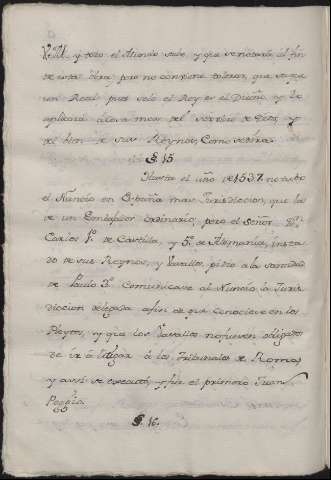 V. M. y todo el Mundo sabe, y que se notará al fin
de esta obra; pero no conviene tolerar, que se saque
un Real, pues solo el Rey es el Dueño, y lo
aplicará à lo a mas del servicio de Dios, y
del bien de sus Reynos, Como se dirá.
§. 15.
Hasta el año de 1537 no tubo
el Nuncio en España mas Jurisdiccion, que la
de un Embajador ordinario; pero el Señor Dn.
Carlos 1º. de Castilla, y 5º. de Alemania, instado
de sus Reynos, y Vasallos, pidio a la santidad
de Paulo 3º. Comunicase al Nuncio, la Juris-
diccion delegada a fin de que Conociese en los
Pleytos, y que los Vasallos no fuesen obligados
de ir à litigar à los Tribunales de Roma,
y assi se executó, y fue el primero Juan
Poggio.
§. 16.